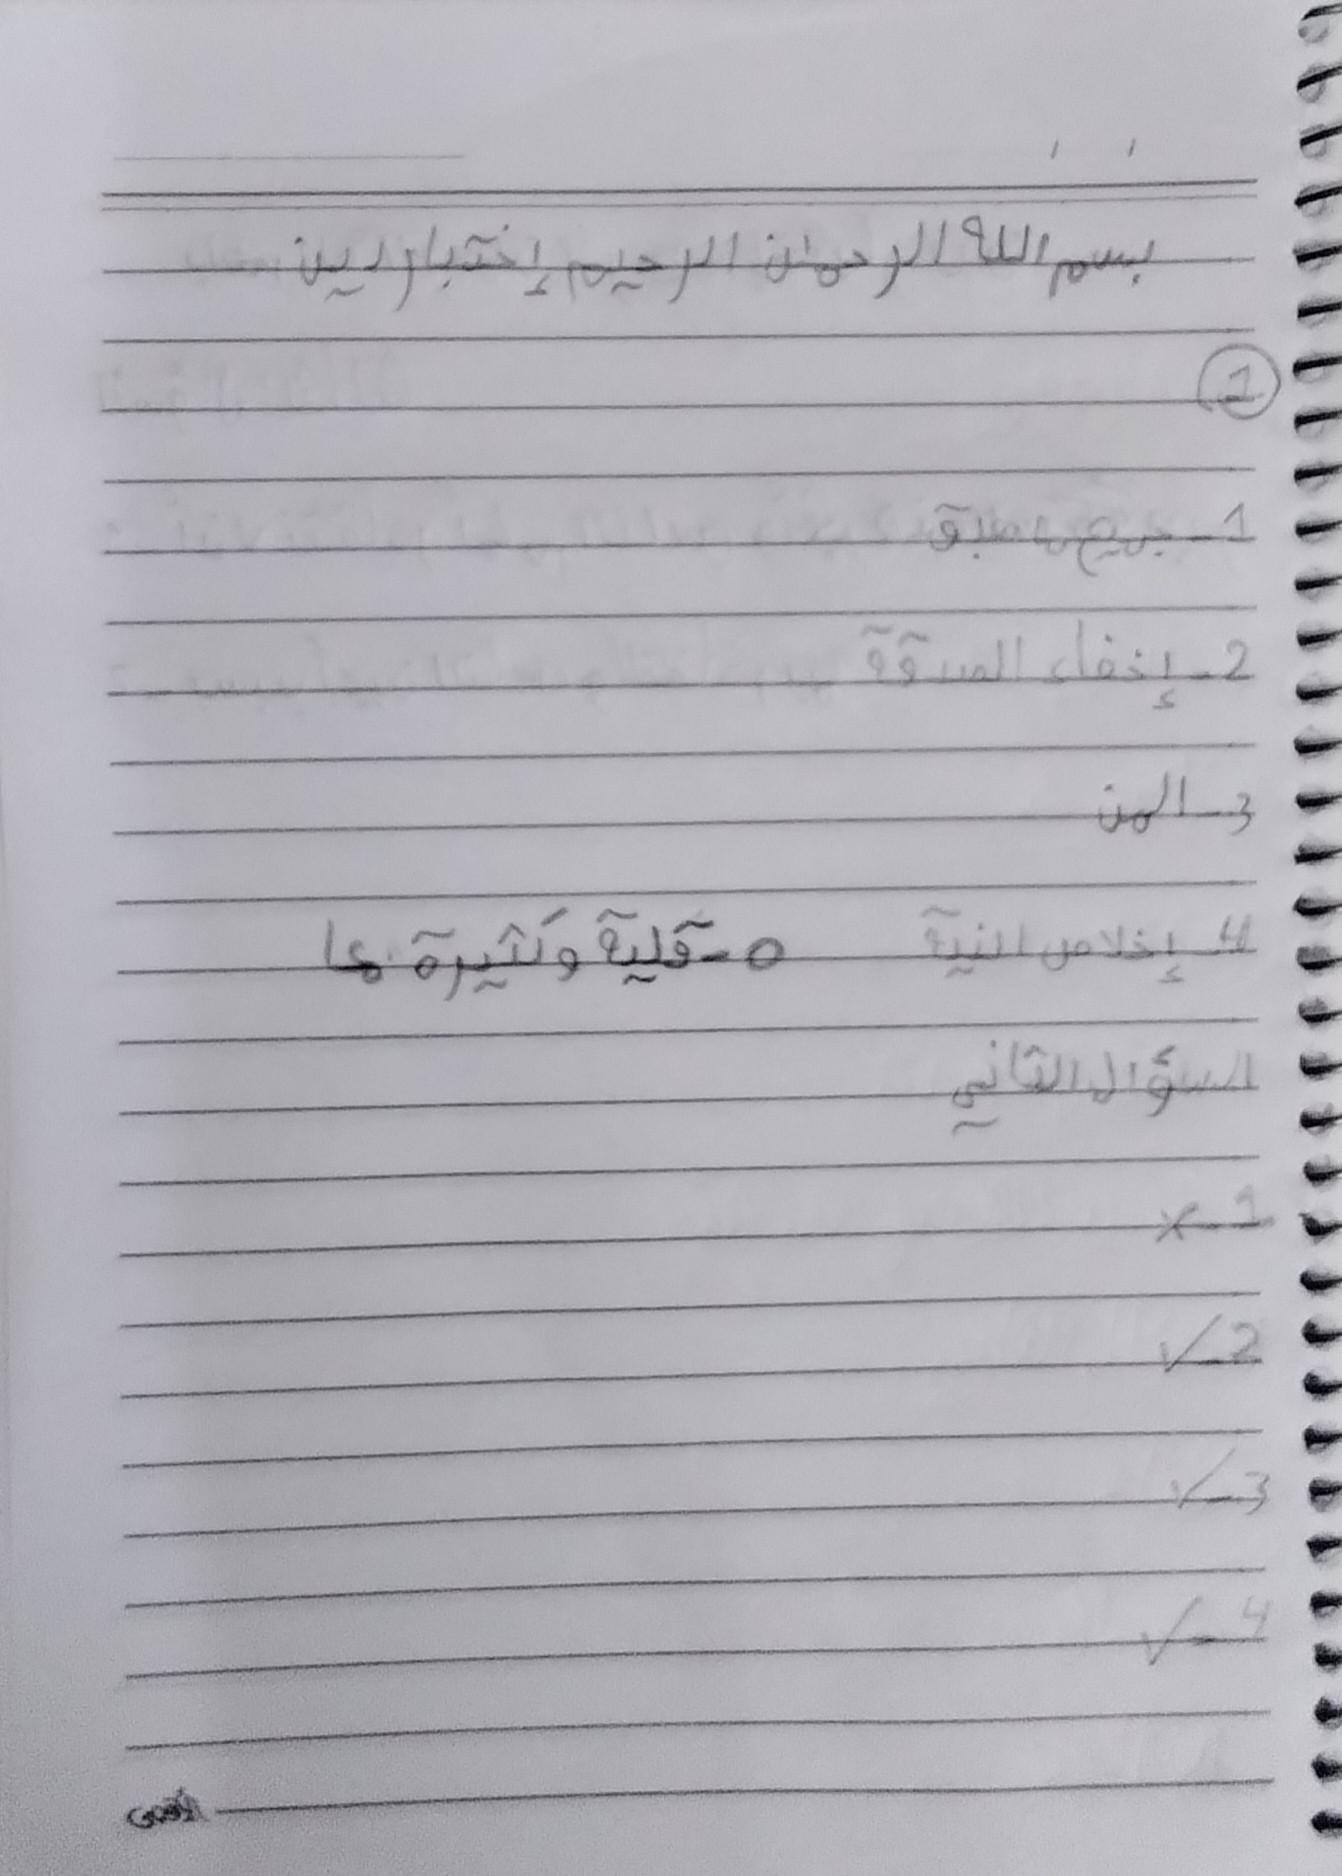 بسم الله الرحمن الرحيم إختبار دين
1
1- جريج
2- إخفاء الصدقة
3- المن
4- إخلاص النية 5- قلية وكثيرة
السؤال الثاني
1- ×
2- ✓
3- ✓
4- ✓
الأقصى